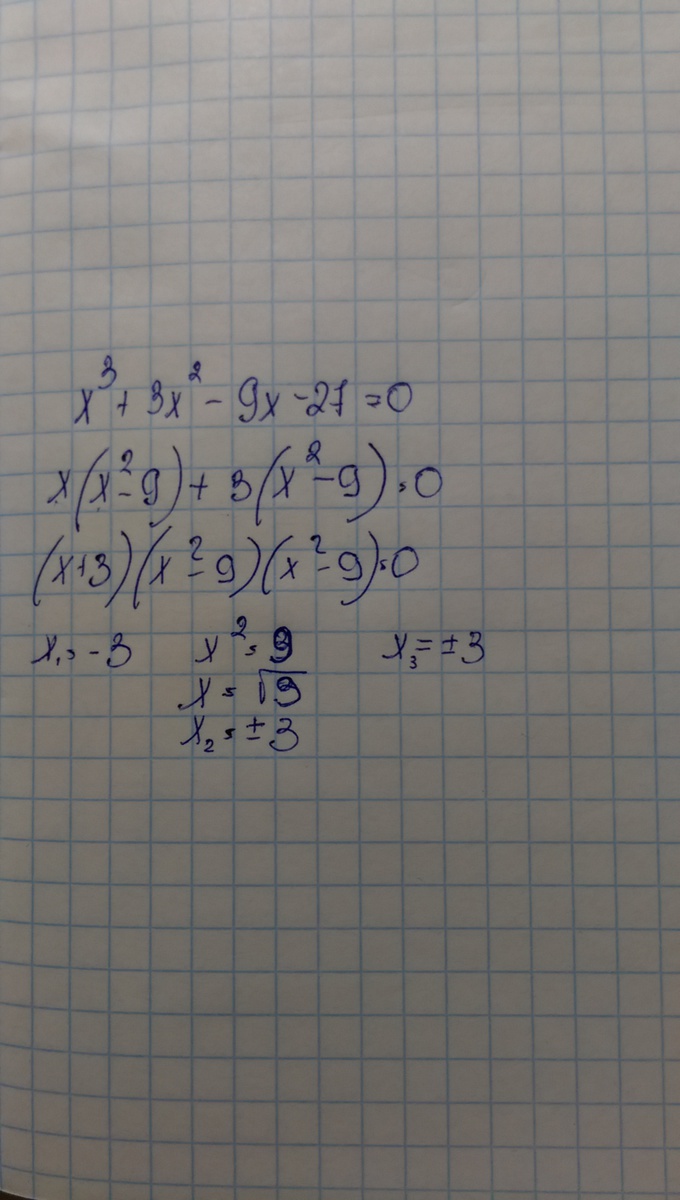 x³ + 3x² - 9x - 27 = 0
x(x² - 9) + 3(x² - 9) = 0
(x+3)(x² - 9)(x² - 9) = 0
x₁ = -3 x² = 9 x₃ = ±3
x = √9
x₂ = ±3